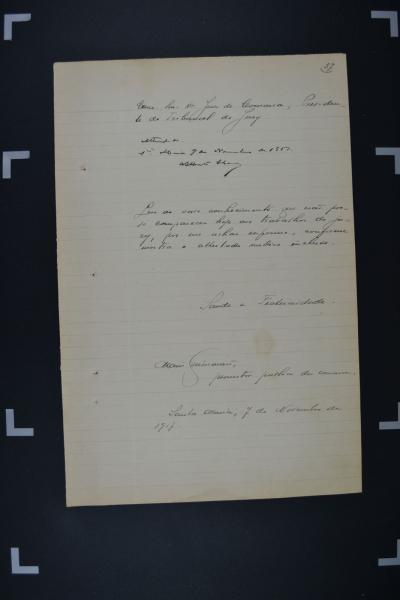 37
Exmo Snr Dr Juiz de Comarca, Presiden-
te do Tribunal do Jury
Sta Maria 7 de Novembro de 1917
Levo ao vosso conhecimento que não pos-
so comparecer hoje aos trabalhos do ju-
ry, por me achar enfermo, conforme
mostra o attestado medico incluso.
Saude e Fraternidade.
Guimarães,
promotor publico da comarca.
Santa Maria, 7 de Novembro de
1917.